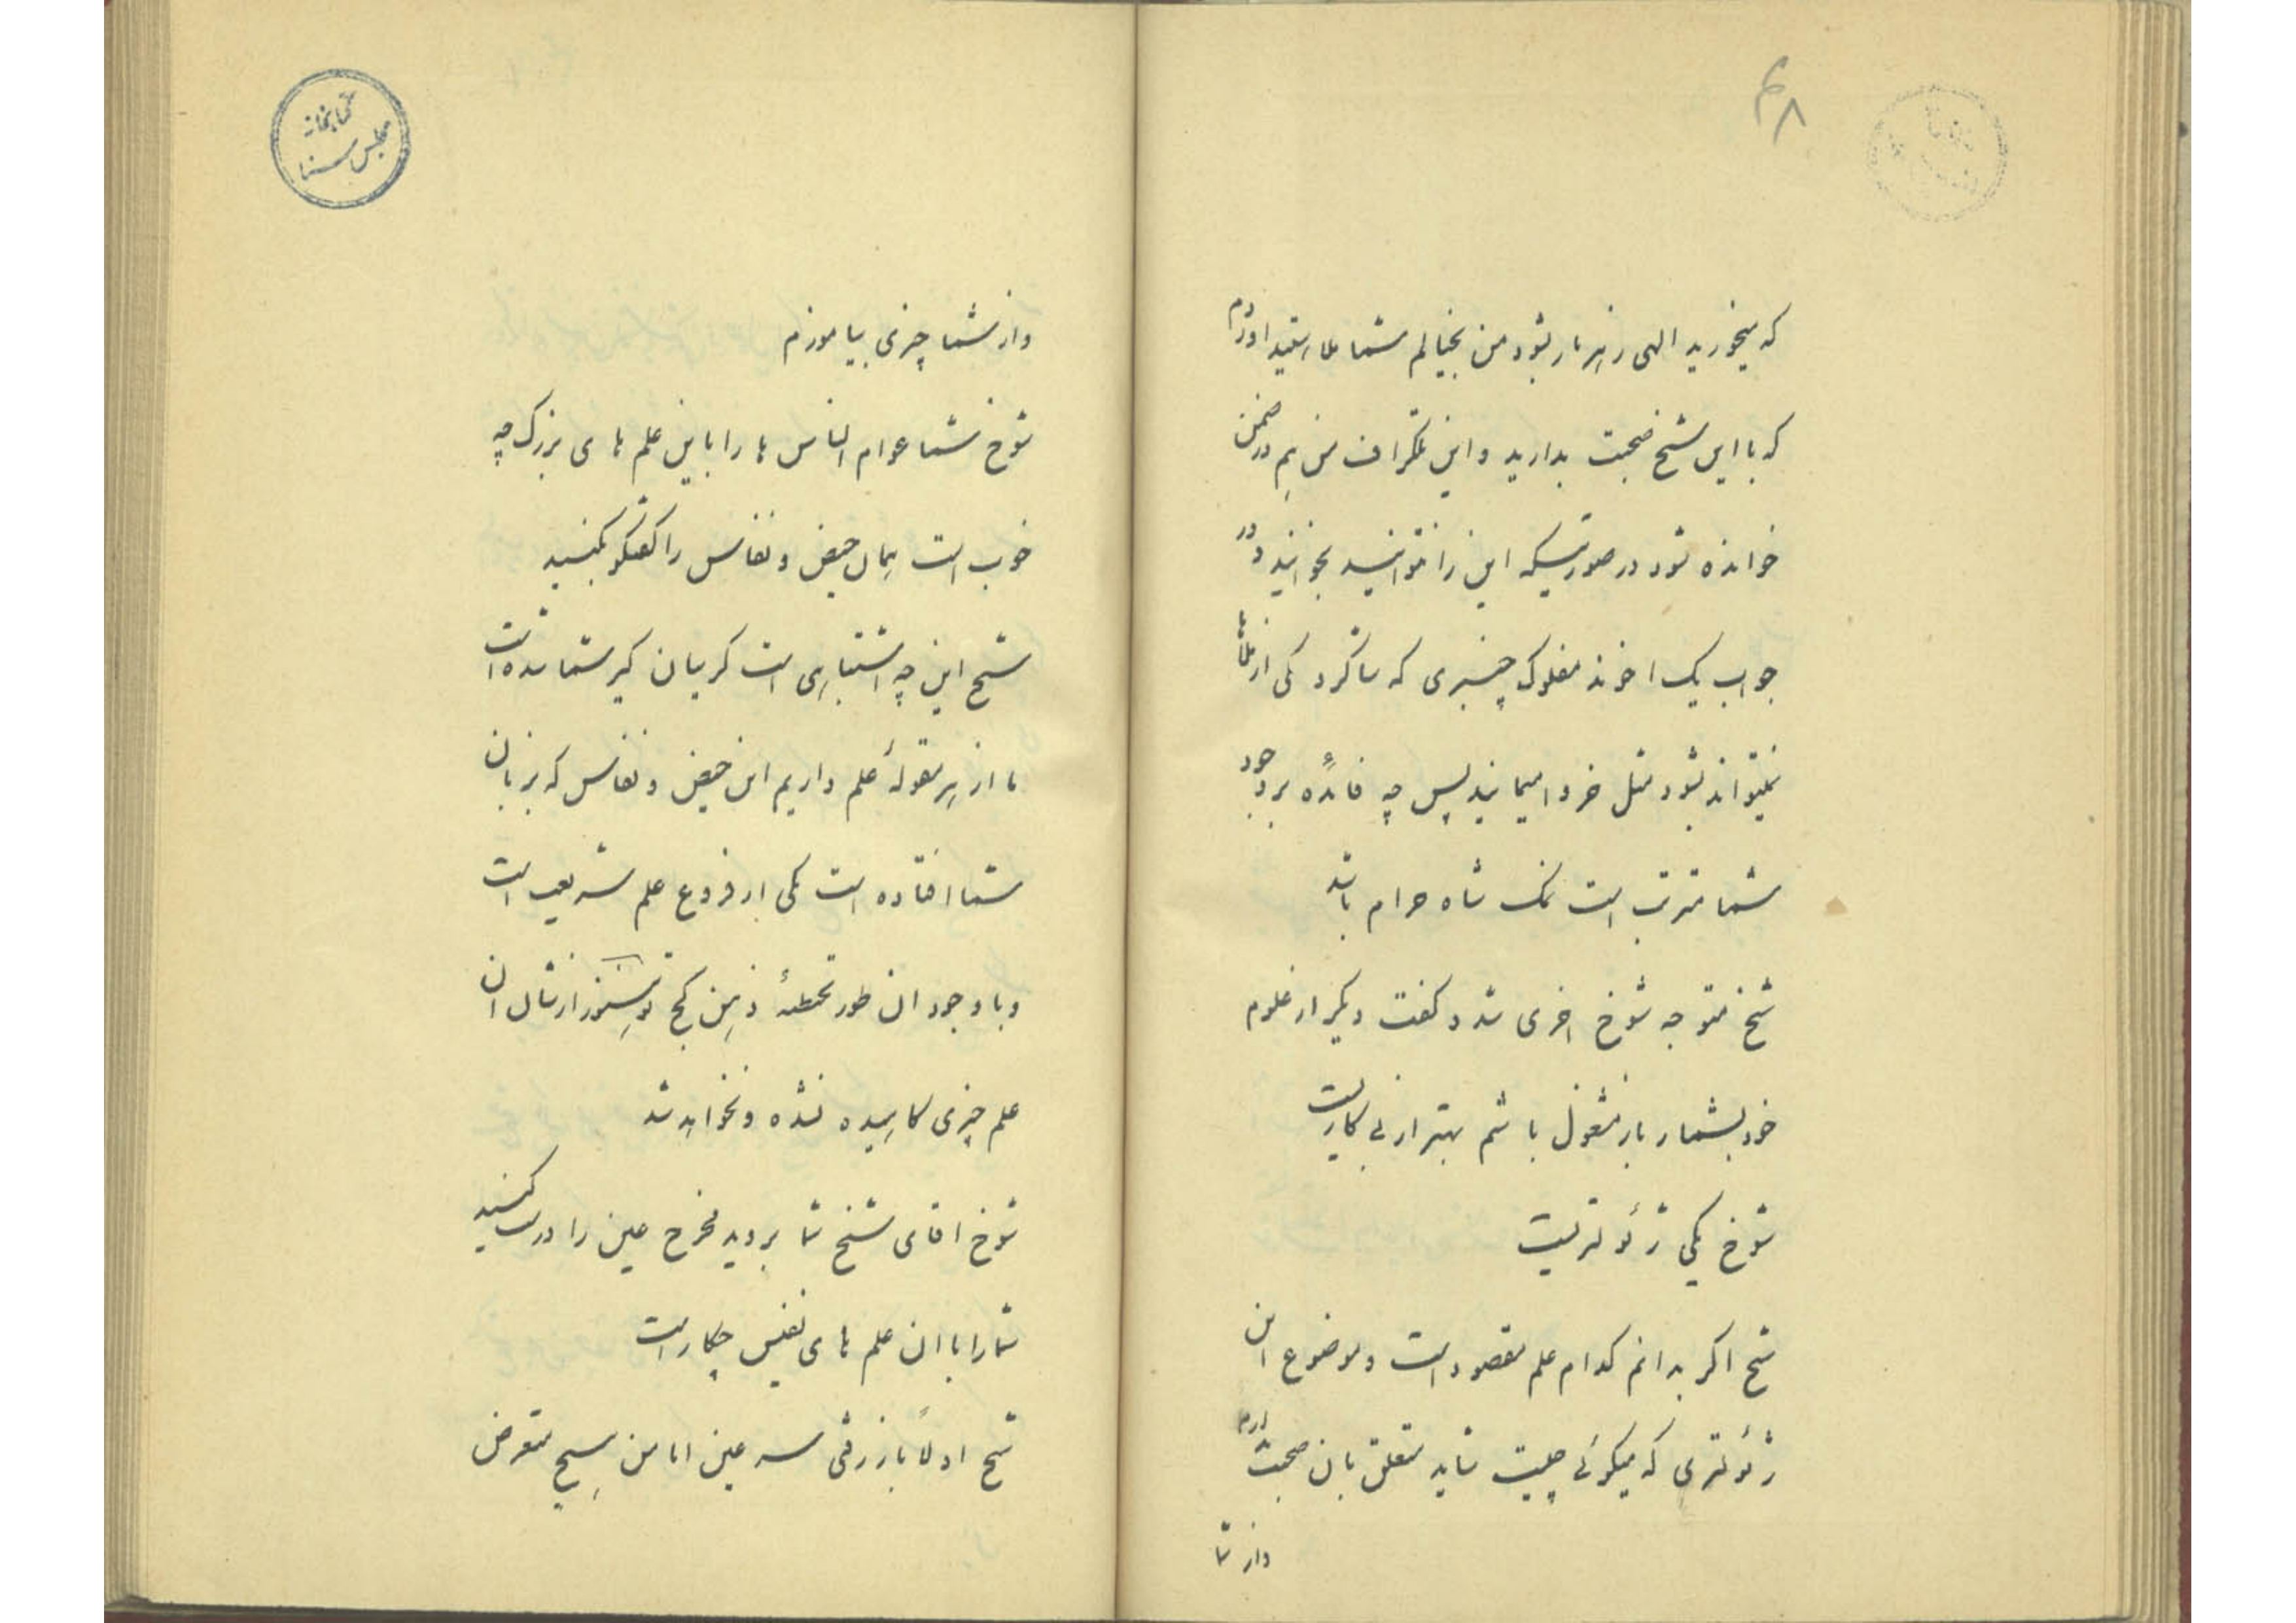 ۴۸
که میخورید الهی زهر مار بشود من بخیالم شما ملا هستید اوردم
که با این شیخ صحبت بدارید و این تلگراف من هم در ضمن
خوانده شود در صورتیکه این را نتوانید بخوانید و در
جواب یک اخوند مفلوک چنبری که شاگرد یکی از ملاها
نمیتواند بشود مثل خر وامیمانید پس چه فائده بر وجود
شما مترتب است نمک شاه حرام باشد
شیخ متوجه شوخ اخری شد و گفت دیگر از علوم
خود بشمار باز مشغول باشم بهتر از بی کاریست
شوخ یکی ژئولتریست
شیخ اگر بدانم کدام علم مقصود است و موضوع این
ژئولتری که میگوئی چیست شاید متعلق بان صحبت دارم
واز شما
کتابخانه
مجلس سنا
واز شما چیزی بیاموزم
شوخ شما عوام الناس ها را باین علم های بزرگ چه
خوب است همان حیض و نفاس را گفتگو بکنید
شیخ این چه اشتباهی است گریبان گیر شما شده است
ما از هر مقولهٔ علم داریم این حیض و نفاس که بزبان
شما افتاده است یکی از فروع علم شریعت است
و با وجود ان طور تخطئهٔ ذهن کج تو هنوز از شان ان
علم چیزی کاهیده نشده و نخواهد شد
شوخ اقای شیخ شما بروید مخرج عین را درست کنید
شما را با ان علم های نفیس چکار است
شیخ اولاً باز رفتی سر عین اما من هیچ متعرض